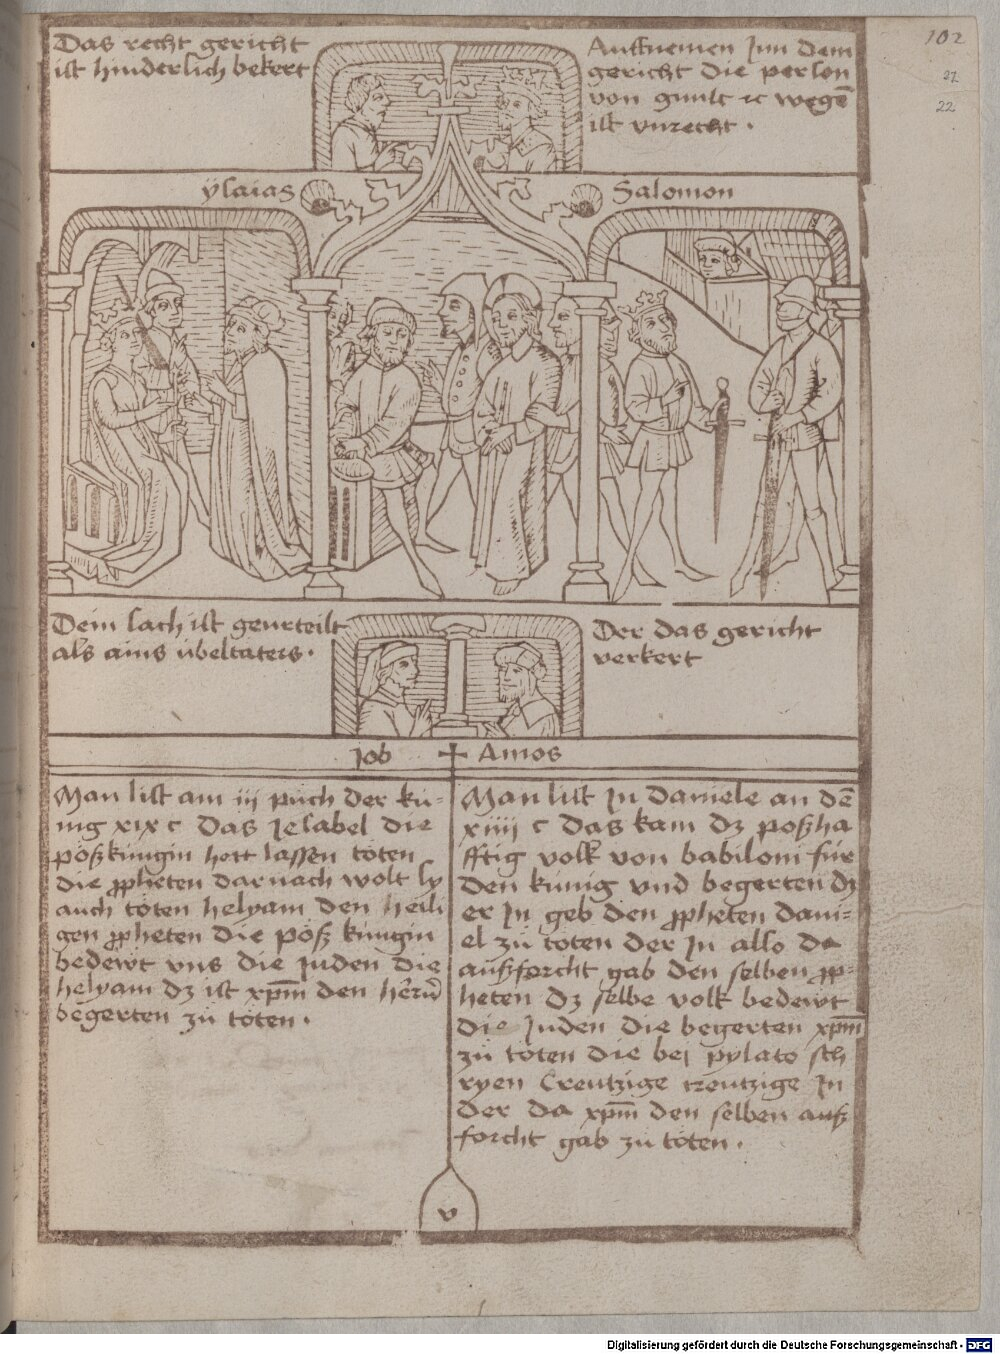 102
21
22
Das recht gericht
ist hinderlich bekert
Auffnemen Inn dem
gericht die person
von gunst ꝛc wegē
ist vnrecht .
ÿsaias
Salomon
Dein sach ist geurteilt
als ains übeltaters .
Der das gericht
verkert
Job ✝ Amos
Man list am iij puch der kü-
nig xix c das Jesabel die
pößkünigin hett lassen töten
die ꝓpheten darnach wolt sy
auch töten helyam den heili
gen ꝓpheten die pöß künigin
bedewt vns die Juden die
helyam dz ist xp̄m den herrn̄
begerten zü töten .
Man list In daniele an dē
xiiij c das kam dz poßha
fftig volk von babiloni für
den künig vnd begerten dz
er In geb den ꝓpheten dani=
el zü töten der In also da
außforcht gab den selben ꝓp=
heten dz selbe volk bedewt
die Juden die begerten xp̄m
zü töten die bei pylato sch
ryen Creutzige creutzige In
der da xp̄m den selben auß
forcht gab zü töten .
v
Digitalisierung gefördert durch die Deutsche Forschungsgemeinschaft - DFG